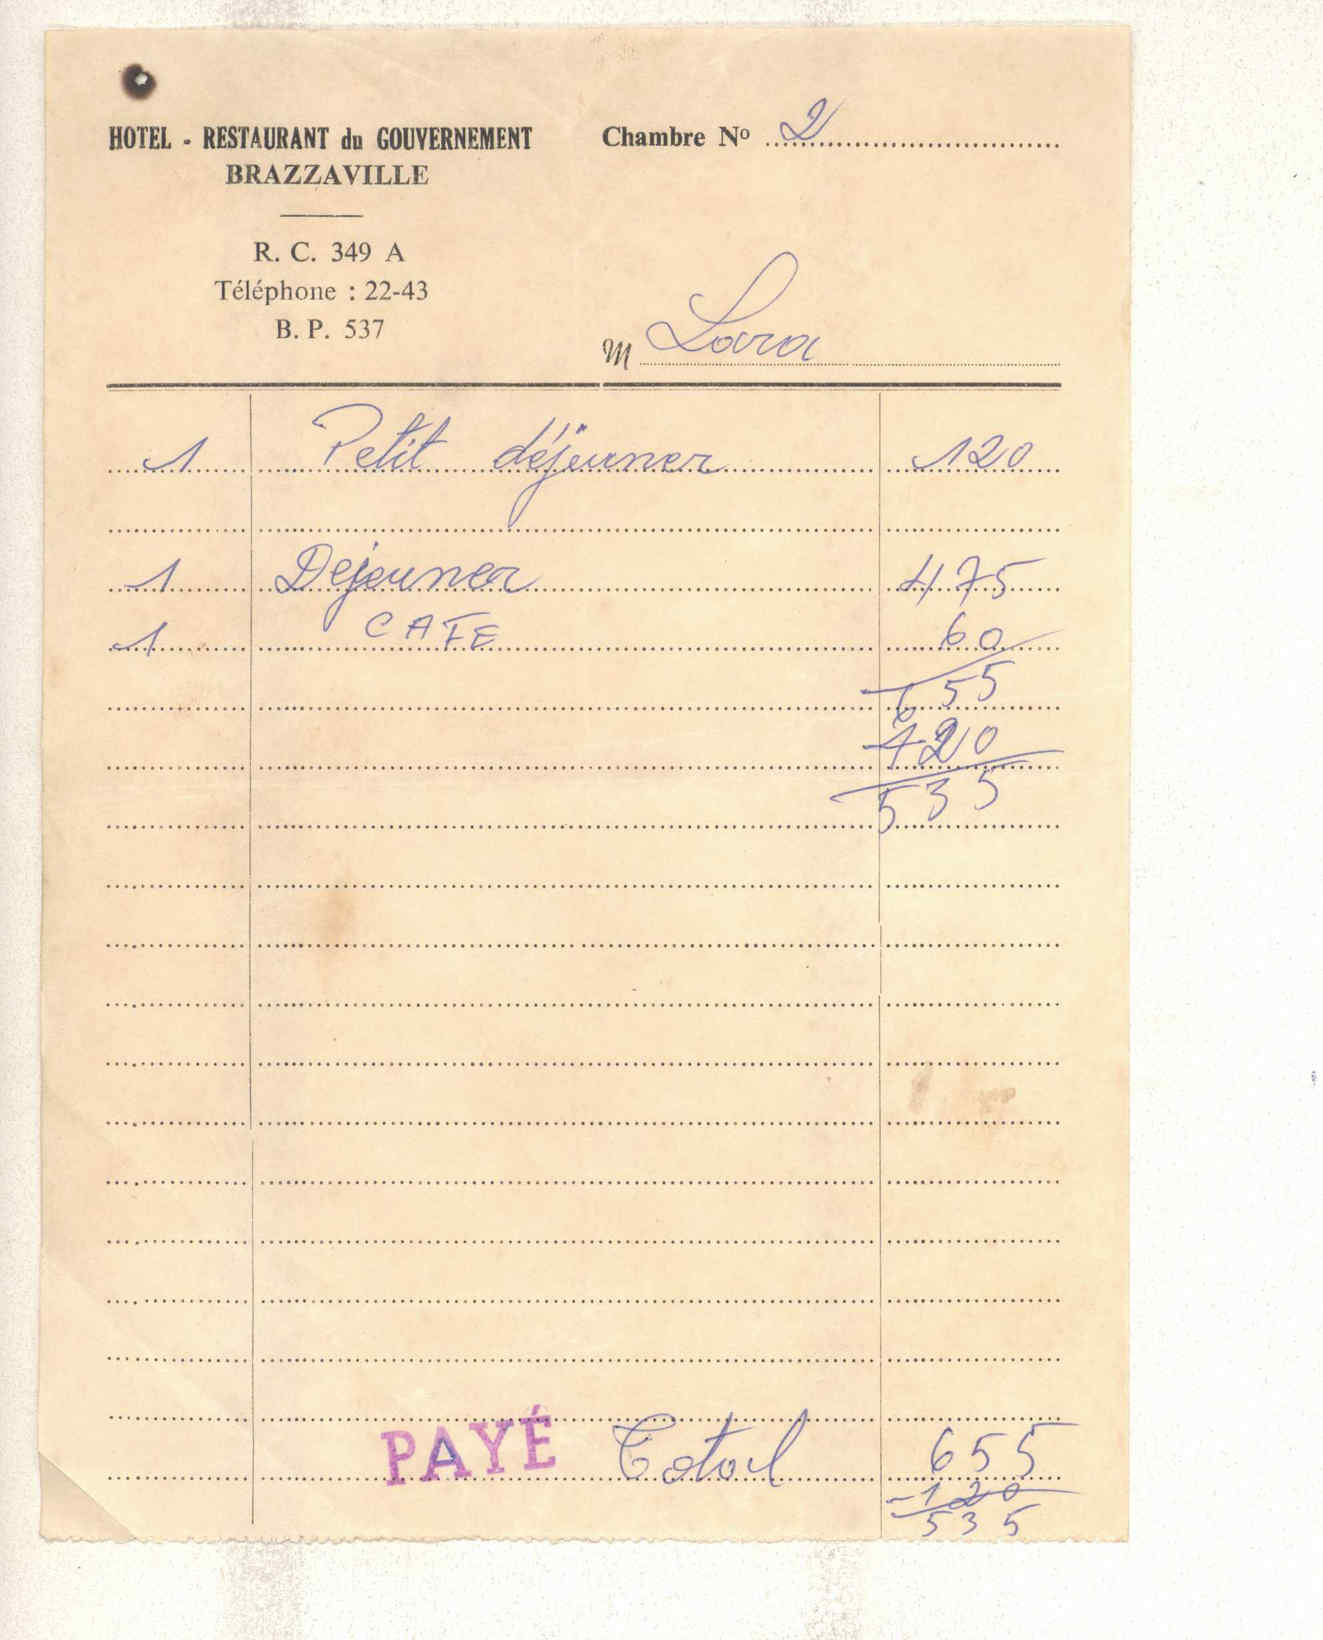 HOTEL - RESTAURANT du GOUVERNEMENT
BRAZZAVILLE
R. C. 349 A
Téléphone : 22-43
B. P. 537
Chambre No 2
M Lara
1 Petit déjeuner 120
1 Dejeuner 475
1 CAFE 60
655
-120
535
PAYÉ Total 655
-120
535